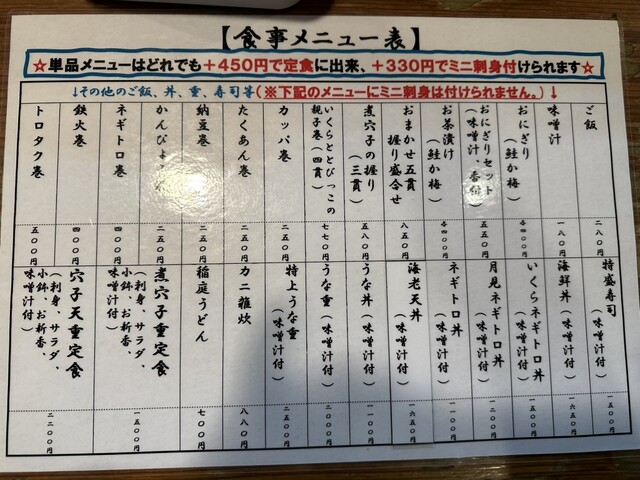 【食事メニュー表】
☆単品メニューはどれでも+450円で定食に出来、+330円でミニ刺身付けられます☆
↓その他のご飯、丼、重、寿司等(※下記のメニューにミニ刺身は付けられません。)↓
ご飯
二八〇円
味噌汁
一八〇円
おにぎり(鮭か梅)
各四〇〇円
おにぎりセット
(味噌汁、香付)
五五〇円
お茶漬け
(鮭か梅)
各四〇〇円
おまかせ五貫
握り盛合せ
八五〇円
煮穴子の握り
(三貫)
五八〇円
いくらととびっこの
親子巻(四貫)
七七〇円
カッパ巻
二五〇円
たくあん巻
二五〇円
納豆巻
二五〇円
かんぴょう
二五〇円
ネギトロ巻
四〇〇円
鉄火巻
四〇〇円
トロタク巻
五〇〇円
特盛寿司
(味噌汁付)
一五〇〇円
海鮮丼(味噌汁付)
一六五〇円
いくらネギトロ丼
(味噌汁付)
一五〇〇円
月見ネギトロ丼
(味噌汁付)
一二〇〇円
ネギトロ丼
(味噌汁付)
一一〇〇円
海老天丼
(味噌汁付)
一六五〇円
うな丼(味噌汁付)
一一〇〇円
うな重(味噌汁付)
二〇〇〇円
特上うな重
(味噌汁付)
二五〇〇円
カニ雑炊
八八〇円
稲庭うどん
七〇〇円
煮穴子重定食
(刺身、サラダ、
小鉢、お新香、
味噌汁付)
一五〇〇円
穴子天重定食
(刺身、サラダ、
小鉢、お新香、
味噌汁付)
二二〇〇円